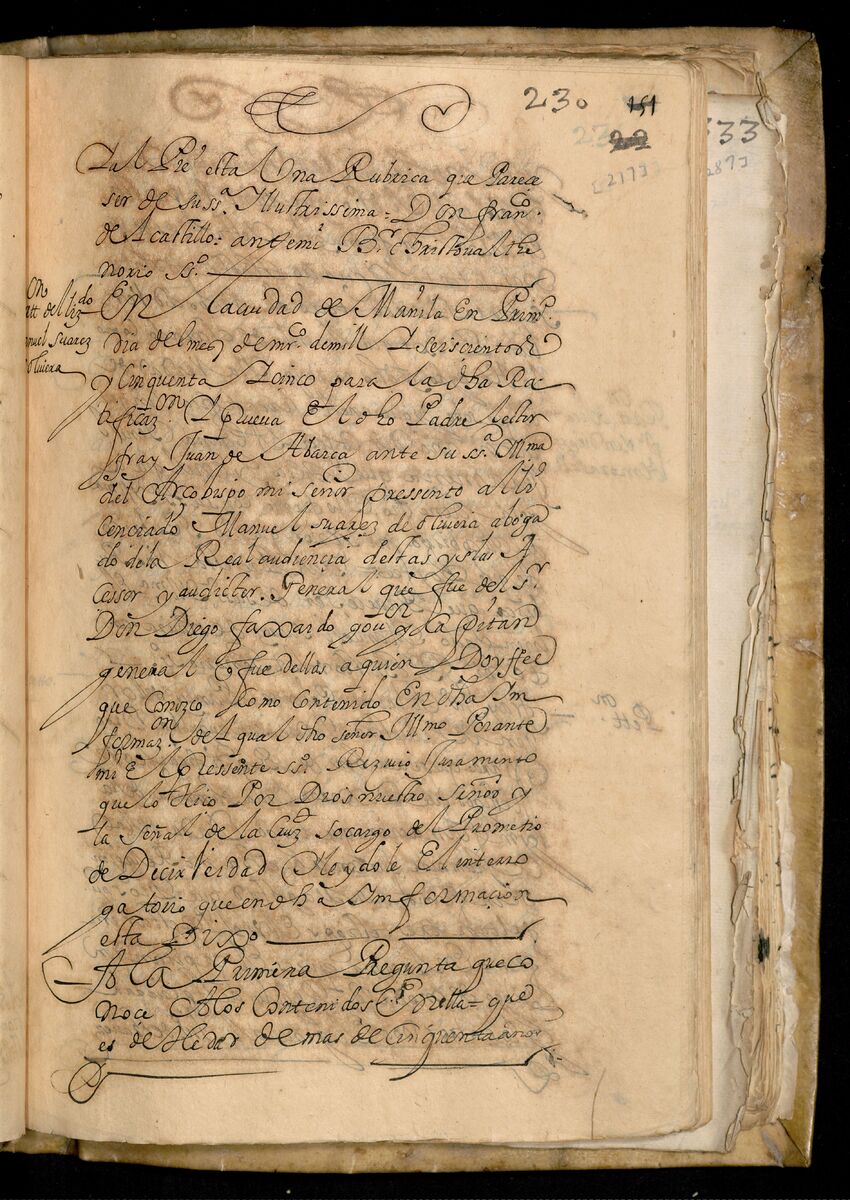 230 151
22
[217]
333
287]
Y al Pie esta Una Rubrica que Parece
ser de su sª Illustrissima = Don franco.
de Acastillo = ante mi Br Christoual the
norio sso.
On
ratt del lizdo
manuel suarez
de oliuera
En la ciudad de Manila En Primo.
dia del mes de mrço de mill Y seiscientos
y Cinquenta Y cinco para la dha Ra
tificazon Y Prueua El dho Padre lector
fray Juan de Abarca ante su sª Illma
del Arcobispo mi señor pressento al li
cenciado Manuel suarez de oliuera aboga
do de la Real audiencia destas yslas A
cessor y audictor General que fue del sr.
Don Diego faxardo gouor y Capitan
general q fue dellas a quien Doy ffee
que Conozco Como Contenido En dha Im
formazon del qual dho señor Illmo Por ante
mi El Pressente sso. Reziuio Juramento
que lo Hico Por Dios nuestro señor y
la señal de la Cruz so cargo del Prometio
de Decir Verdad Y leydole El interro
gatorio que en dha Imformacion
esta Dixo
A la Primera Pregunta que co
noce A los Contenidos En ella = que
es de Hedad de mas de Cinquenta años